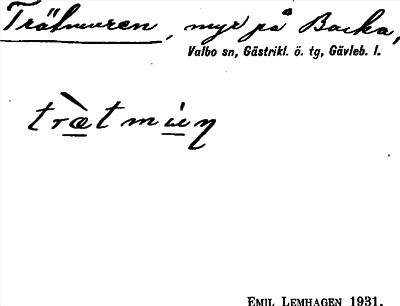 Trätmuren, myr på Backa,
Valbo sn, Gästrikl. ö. tg, Gävleb. l.
træ̀tmu̇ŋ
EMIL LEMHAGEN 1931.